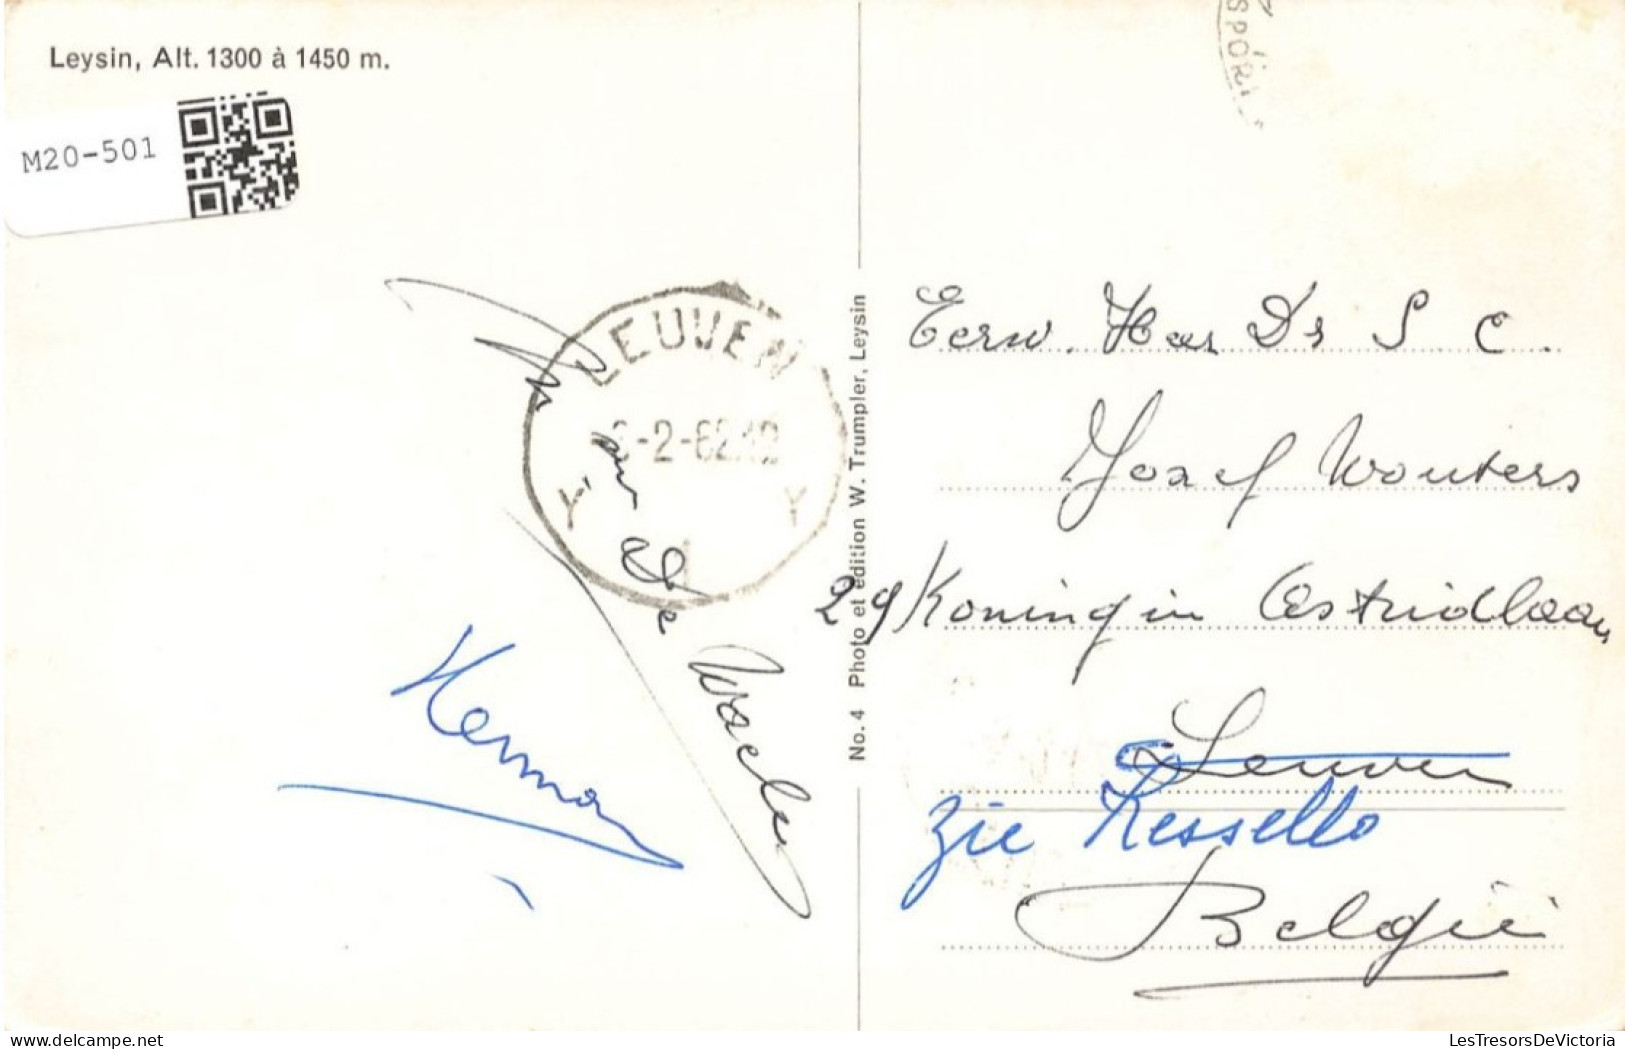 Leysin, Alt. 1300 à 1450 m.
M20-501
LEUVEN
-2-62.12
Y Y
1
Herman
No. 4 Photo et édition W. Trumpler, Leysin
SPORT
Eerw. Heer Dr S C.
Jozef Wouters
29 Koningin Astridlaan
Leuven
zie Kessello
België
LesTresorsDeVictoria